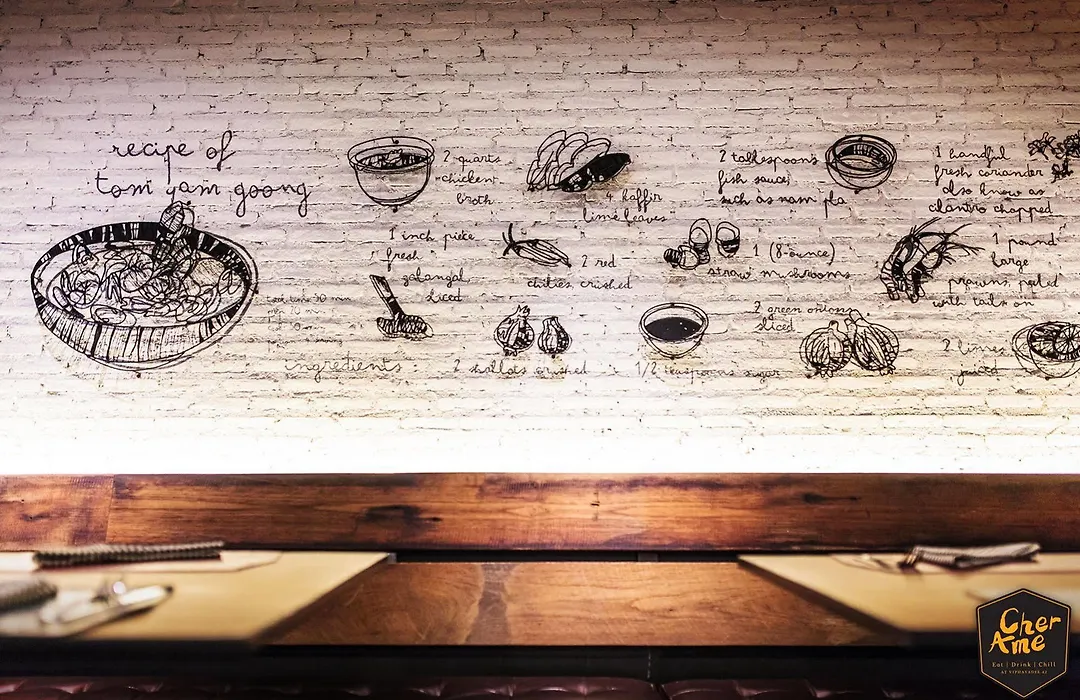 recipe of
tom yam goong
2 quarts
chicken
broth
4 kaffir
lime leaves
2 tablespoons
fish sauce
such as nam pla
1 handful
fresh coriander
also know as
cilantro chopped
1 inch piece
fresh
galangal
sliced
2 red
chilies crushed
1 (8-ounce)
straw mushrooms
1 pound
large
prawns, peeled
with tails on
ingredients:
2 shallots crushed
1/2 teaspoons sugar
2 green onions
sliced
2 limes
juiced
Cher
Ame
Eat | Drink | Chill